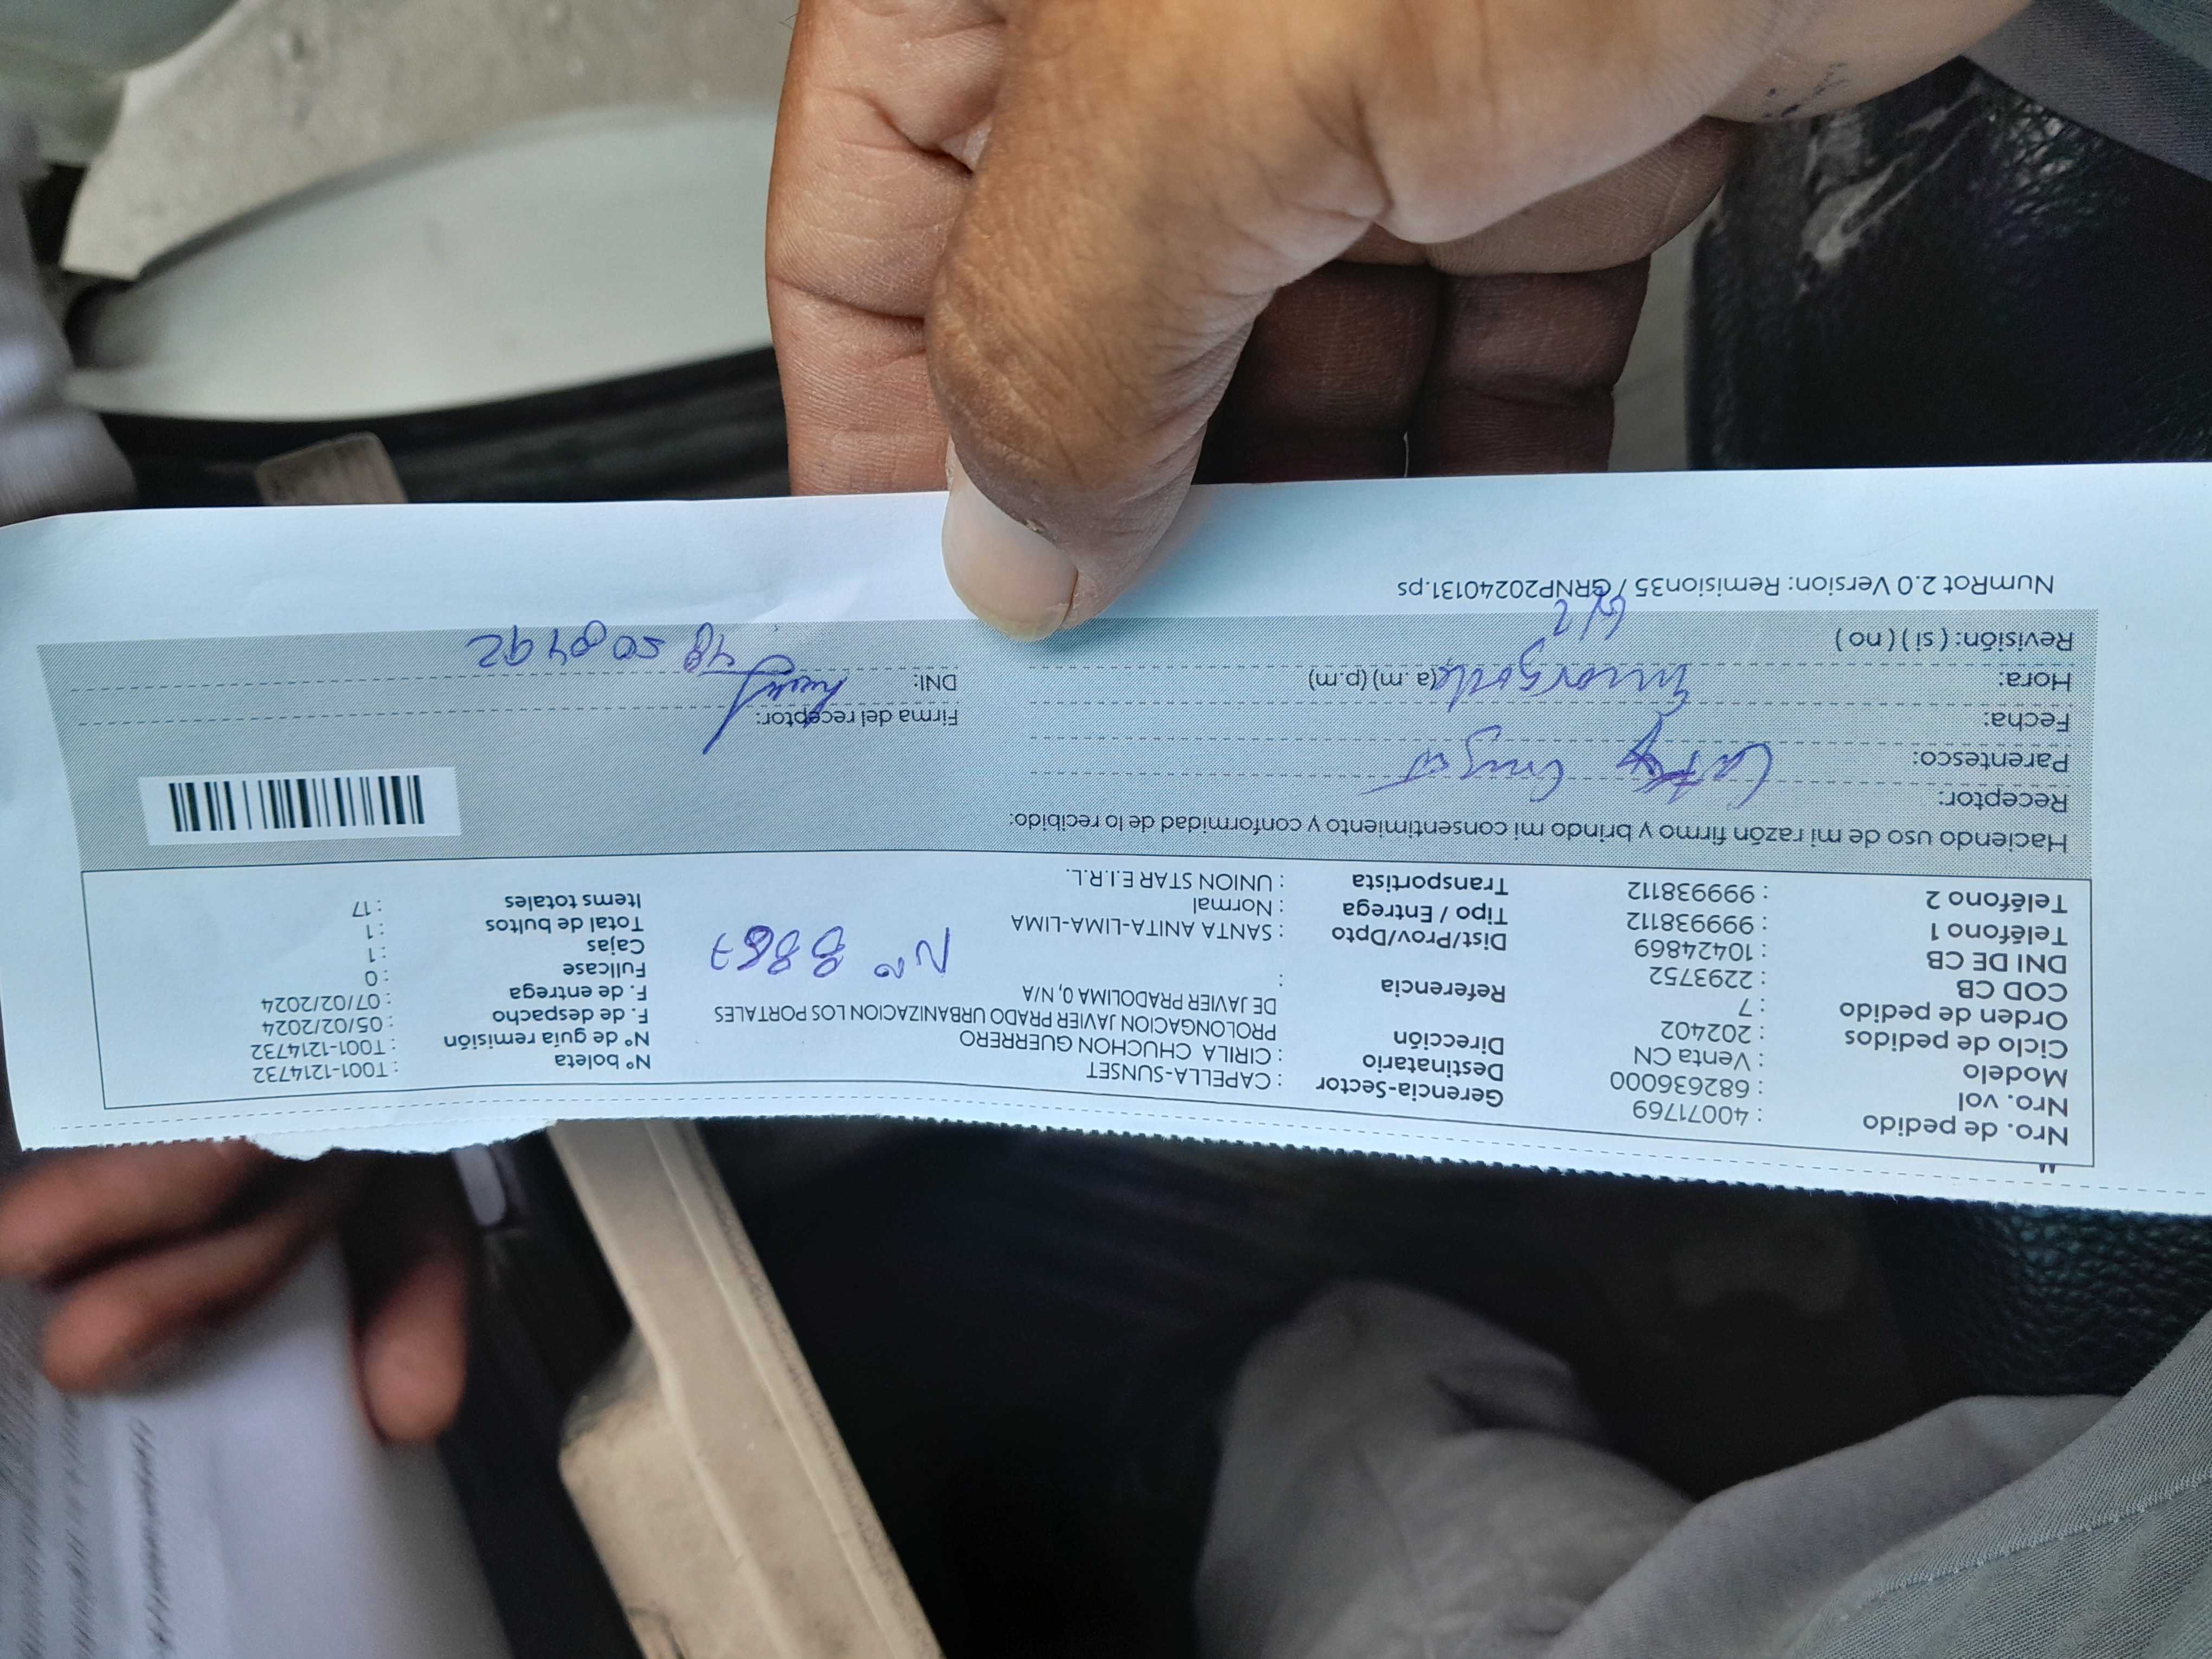 Nro. de pedido : 40071769 Gerencia-Sector : CAPELLA-SUNSET Nº boleta : T001-1214732
Nro. vol : 682636000 Destinatario : CIRILA CHUCHON GUERRERO Nº de guía remisión : T001-1214732
Modelo : Venta CN Dirección PROLONGACION JAVIER PRADO URBANIZACION LOS PORTALES F. de despacho : 05/02/2024
Ciclo de pedidos : 202402 DE JAVIER PRADOLIMA 0, N/A F. de entrega : 07/02/2024
Orden de pedido : 7 Referencia : Fullcase : 0
COD CB : 2293752 Nº 8867 Cajas : 1
DNI DE CB : 10424869 Dist/Prov/Dpto : SANTA ANITA-LIMA-LIMA Total de bultos : 1
Teléfono 1 : 999938112 Tipo / Entrega : Normal Items totales : 17
Teléfono 2 : 999938112 Transportista : UNION STAR E.I.R.L.
Haciendo uso de mi razón firmo y brindo mi consentimiento y conformidad de lo recibido:
Receptor:
Parentesco:
Fecha: Firma del receptor:
Hora: (a .m) (p.m) DNI:
Revisión: ( si ) ( no ) 6/2
NumRot 2.0 Version: Remision35 / GRNP20240131.ps